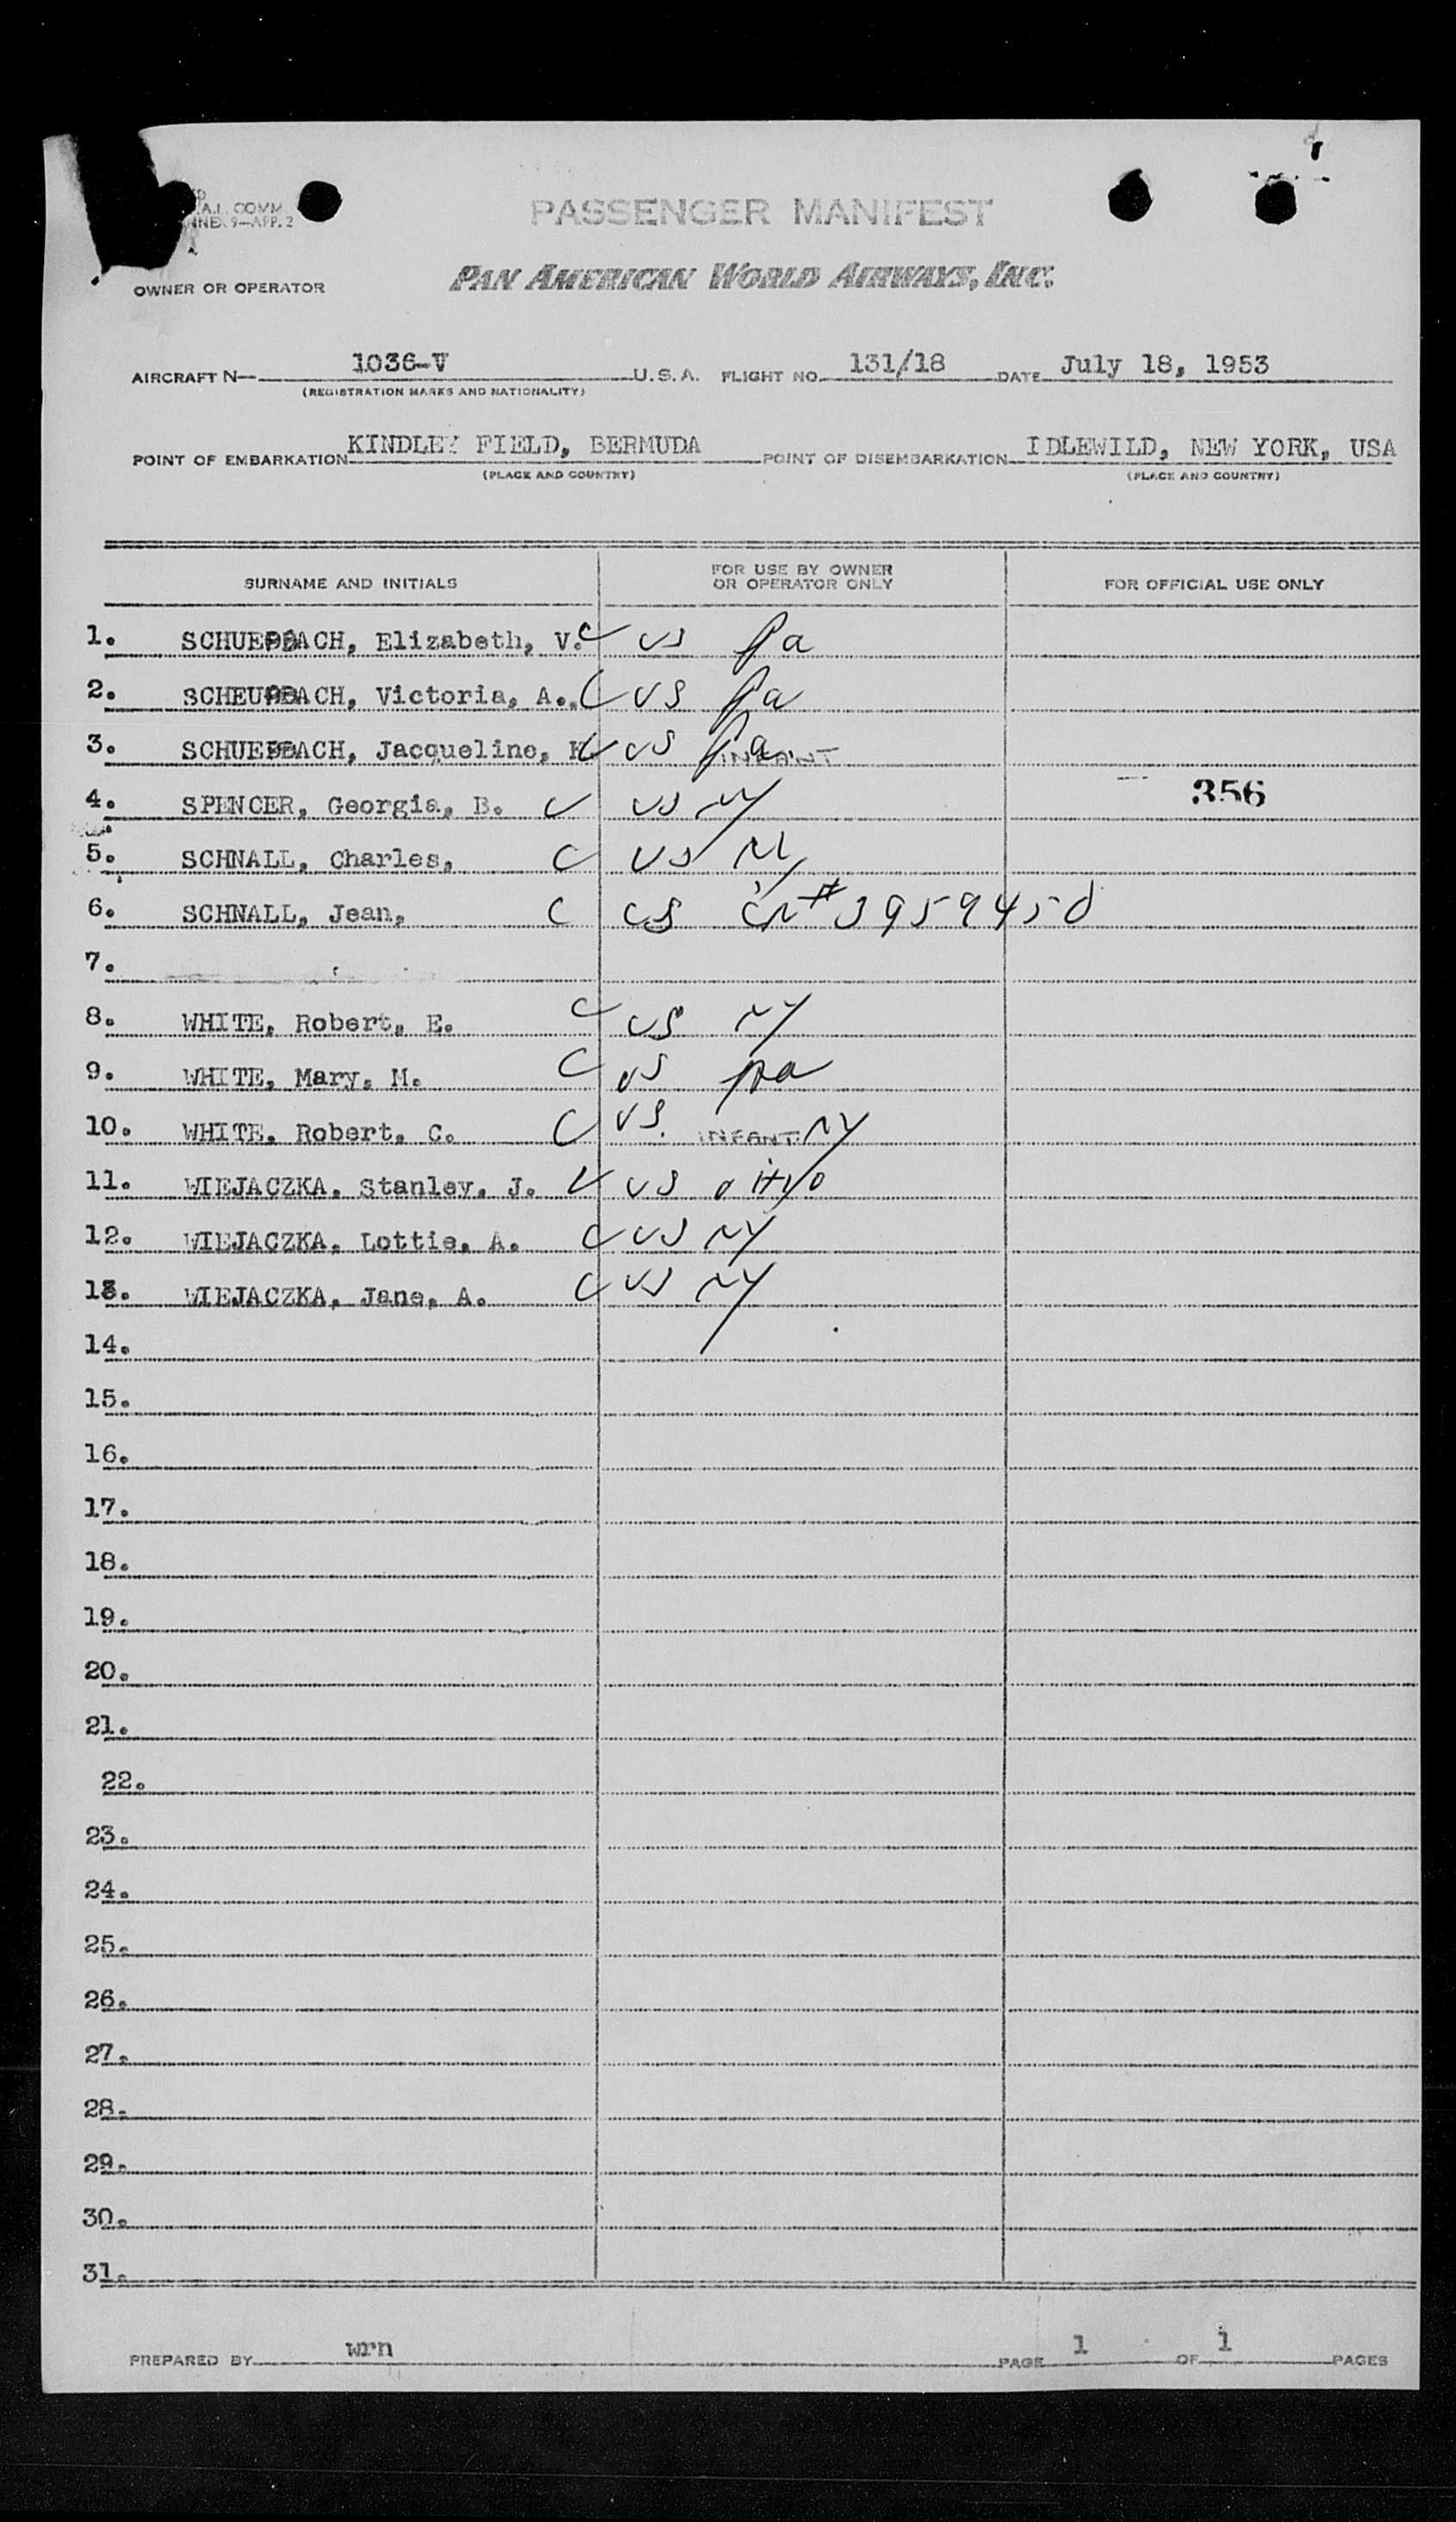 A.I. COMM.
9—APP. 2
PASSENGER MANIFEST
OWNER OR OPERATOR PAN AMERICAN WORLD AIRWAYS, INC.
AIRCRAFT N— 1036-V U.S.A. FLIGHT NO. 131/18 DATE July 18, 1953
(REGISTRATION MARKS AND NATIONALITY)
POINT OF EMBARKATION KINDLEY FIELD, BERMUDA POINT OF DISEMBARKATION IDLEWILD, NEW YORK, USA
(PLACE AND COUNTRY) (PLACE AND COUNTRY)
SURNAME AND INITIALS FOR USE BY OWNER OR OPERATOR ONLY FOR OFFICIAL USE ONLY
1. Elizabeth, V. C US Pa
2. Victoria, A. C US Pa
3. Jacqueline, C US Pa INFANT
356
4. SPENCER, Georgia, B. C US NY
5. SCHNALL, Charles, C US NY
6. SCHNALL, Jean, C US CN# 3959450
7.
8. WHITE, Robert, E. C US NY
9. WHITE, Mary, M. C US Pa
10. WHITE, Robert, C. C US. INFANT NY
11. WIEJACZKA, Stanley, J. C US ditto
12. WIEJACZKA, Lottie, A. C US NY
13. WIEJACZKA, Jane, A. C US NY
14.
15.
16.
17.
18.
19.
20.
21.
22.
23.
24.
25.
26.
27.
28.
29.
30.
31.
PREPARED BY wrn PAGE 1 OF 1 PAGES